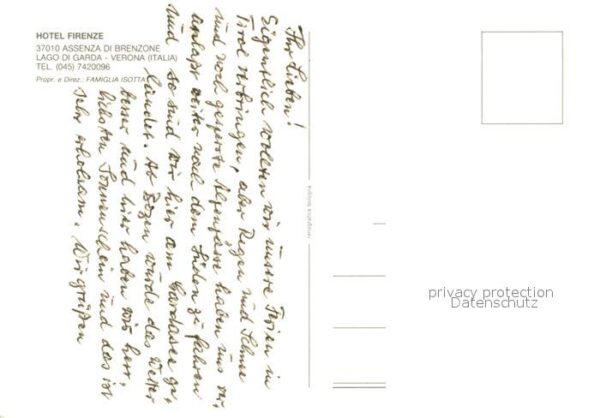 HOTEL FIRENZE
37010 ASSENZA DI BRENZONE
LAGO DI GARDA - VERONA (ITALIA)
TEL. (045) 7420096
Propr. e Direz.: FAMIGLIA ISOTTA
Ihr Lieben!
Eigentlich wollten wir unsere Ferien in
Tirol verbringen, aber Regen und Schnee
und noch gesperrte Alpenpässe haben uns ver-
anlaßt weiter nach dem Süden zu fahren
und so sind wir hier am Gardasee ge-
landet. Ab Bozen wurde das Wetter
besser und hier haben wir herr-
lichsten Sonnenschein und das ist
sehr erholsam. Wir grüßen
privacy protection
Datenschutz